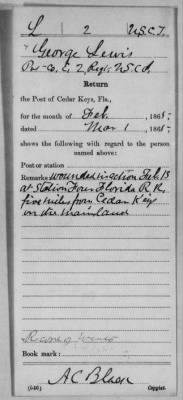 L 2 U.S.C.T.
George Lewis
Pvt Co. E, 2 Reg't U.S.C.I.
Return
the Post of Cedar Keys, Fla.,
for the month of Feb., 1865;
dated Mar 1, 1865.
shows the following with regard to the person
named above:
Post or station
Remarks wounded in action Feb. 13
at Station Four Florida R.R.,
five miles from Cedar Keys
on the mainland
Book mark:
(646) A C Blasen Copyist.